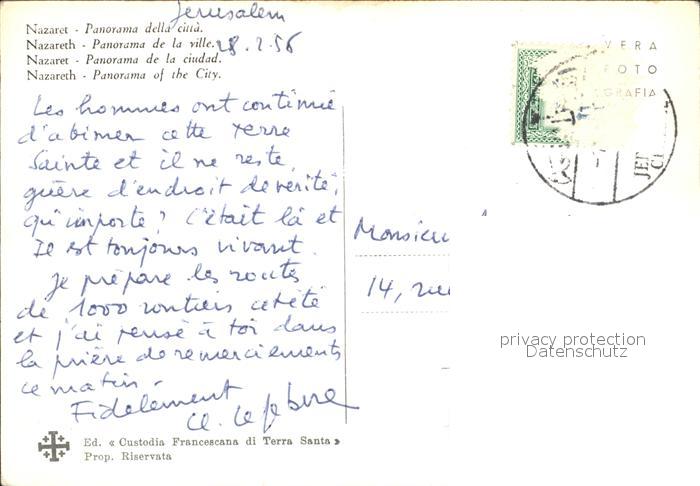 Jerusalem
Nazaret - Panorama della città.
Nazareth - Panorama de la ville.
28.2.56
Nazaret - Panorama de la ciudad.
Nazareth - Panorama of the City.
VERA
FOTO
GRAFIA
Les hommes ont continué
d'abimer cette Terre
Sainte et il ne reste
guère d'endroit de vérité,
qu'importe ? C'était là et
Il est toujours vivant.
Je prépare les routes
de 1000 routiers cet été
et j'ai pensé à toi dans
la prière de remerciements
ce matin.
Fidèlement
Monsieur
14, rue
privacy protection
Datenschutz
Ed. « Custodia Francescana di Terra Santa »
Prop. Riservata